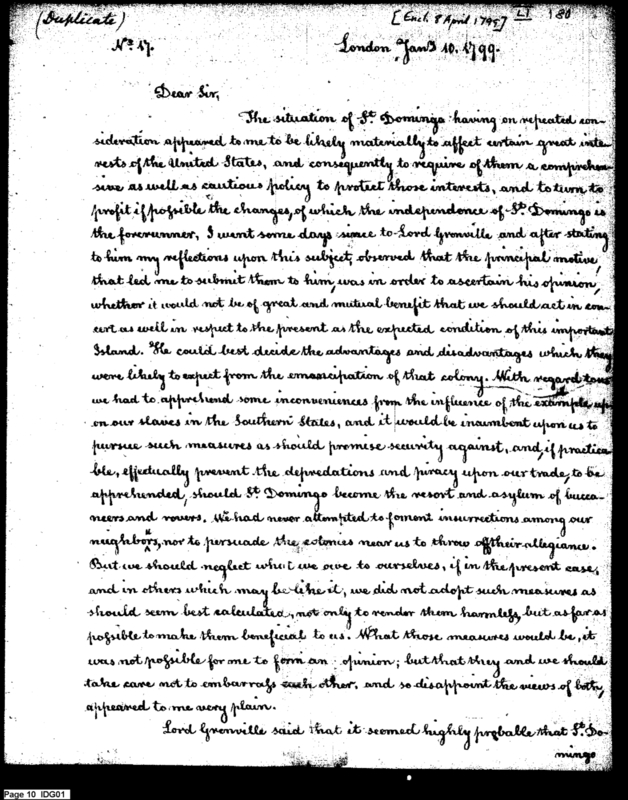 (Duplicate) [Encl. 8 April 1799] LI 180
No. 17. London Jany 10. 1799.
Dear Sir,
The situation of St. Domingo having on repeated con-
sideration appeared to me to be likely materially to affect certain great inte-
rests of the United States, and consequently to require of them a comprehen-
sive as well as cautious policy to protect those interests, and to turn to
profit if possible the changes, of which the independence of St. Domingo is
the forerunner, I went some days since to Lord Grenville and after stating
to him my reflections upon this subject, observed that the principal motive,
that led me to submit them to him, was in order to ascertain his opinion,
whether it would not be of great and mutual benefit that we should act in con-
cert as well in respect to the present as the expected condition of this important
Island. He could best decide the advantages and disadvantages which they
were likely to expect from the emancipation of that colony. With regard to us
we had to apprehend some inconveniences from the influence of the example up-
on our slaves in the Southern States, and it would be incumbent upon us to
pursue such measures as should promise security against, and, if practica-
ble, effectually prevent the depredations and piracy upon our trade, to be
apprehended, should St. Domingo become the resort and asylum of bucca-
neers and rovers. We had never attempted to foment insurrections among our
neighbours, nor to persuade the colonies near us to throw off their allegiance.
But we should neglect what we owe to ourselves, if in the present case,
and in others which may be like it, we did not adopt such measures as
should seem best calculated, not only to render them harmless, but as far as
possible to make them beneficial to us. What those measures would be, it
was not possible for me to form an opinion; but that they and we should
take care not to embarrass each other, and so disappoint the views of both,
appeared to me very plain.
Lord Grenville said that it seemed highly probable that St. Do-
mingo
Page 10 IDG01